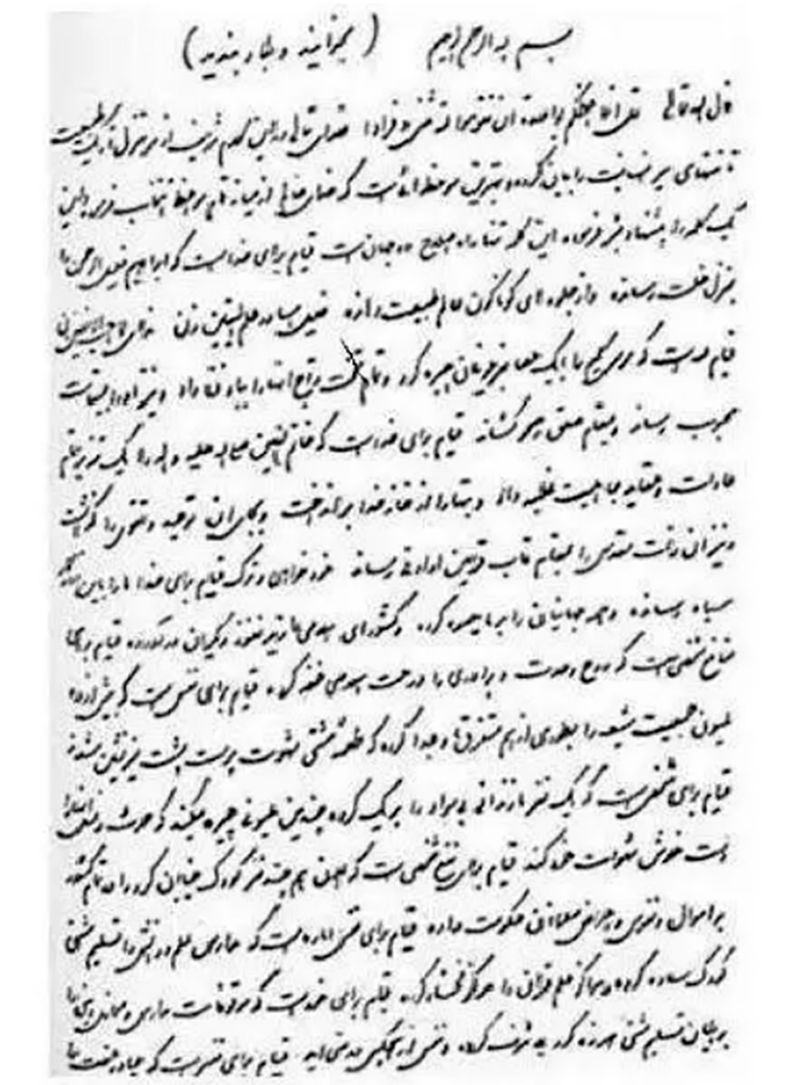 بسم الله الرحمن الرحیم (بخوانید و بکار بندید)
قال الله تعالی قل انما اعظکم بواحدة ان تقوموا لله مثنی و فرادا خدای تعالی در این کلام شریف از سر منزل تاریک طبیعت
تا منتهای سیر انسانیت را بیان کرده و بهترین موعظه ایست که خدای عالم از میانه تمام مواعظ انتخاب فرموده و این
یک کلمه را پیشنهاد بشر فرموده این کلمه تنها راه اصلاح دو جهانست قیام برای خداست که ابراهیم خلیل الرحمن را
بمنزل خلت رسانده و از جلوه های گوناگون عالم طبیعت رهانده خلیل آسا در علم الیقین زن ندای لا احب الافلین زن
قیام لله است که موسی کلیم را با یک عصا بفرعونیان چیره کرد و تمام تخت و تاج آنها را بباد فنا داد و نیز او را بمیقات
محبوب رساند و بمقام صعق و صحو کشاند قیام برای خداست که خاتم النبیین صلی الله علیه و آله را یک تنه بر تمام
عادات و عقاید جاهلیت غلبه داد و بتها را از خانه خدا برانداخت و بجای آن توحید و تقوی را گذاشت
و نیز آن ذات مقدس را بمقام قاب قوسین او ادنی رساند خودخواهی و ترک قیام برای خدا ما را باین روزگار
سیاه رسانده و همه جهانیان را بر ما چیره کرده و کشورهای اسلامی را زیر نفوذ دیگران درآورده قیام برای
منافع شخصی است که روح وحدت و برادری را در ملت اسلامی خفه کرده قیام برای نفس است که بیش از ده
میلیون جمعیت شیعه را بطوری از هم متفرق و جدا کرده که طعمه مشتی شهوت پرست پشت میز نشین شدند
قیام برای شخص است که یک نفر مازندرانی بی سواد را بر یک گروه چندین میلیونی چیره میکند که حرث و نسل آنها را
دست خوش شهوات خود کند قیام برای نفع شخصی است که الان هم چند نفر کودک خیابان گرد را در تمام کشور
بر اموال و نفوس و اعراض مسلمانان حکومت داده قیام برای نفس اماره است که مدارس علم و دانش را تسلیم مشتی
کودک ساده کرده و مراکز علم قرآن را مرکز فحشاء کرده قیام برای خود است که موقوفات مدارس و محافل دینی را
برایگان تسلیم مشتی هرزه گرد بی شرف کرده و نفس از هیچکس در نمی آید قیام برای نفس است که چادر عفت را